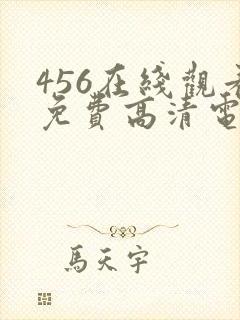 456在綫觀看
免費高清電
馬天宇